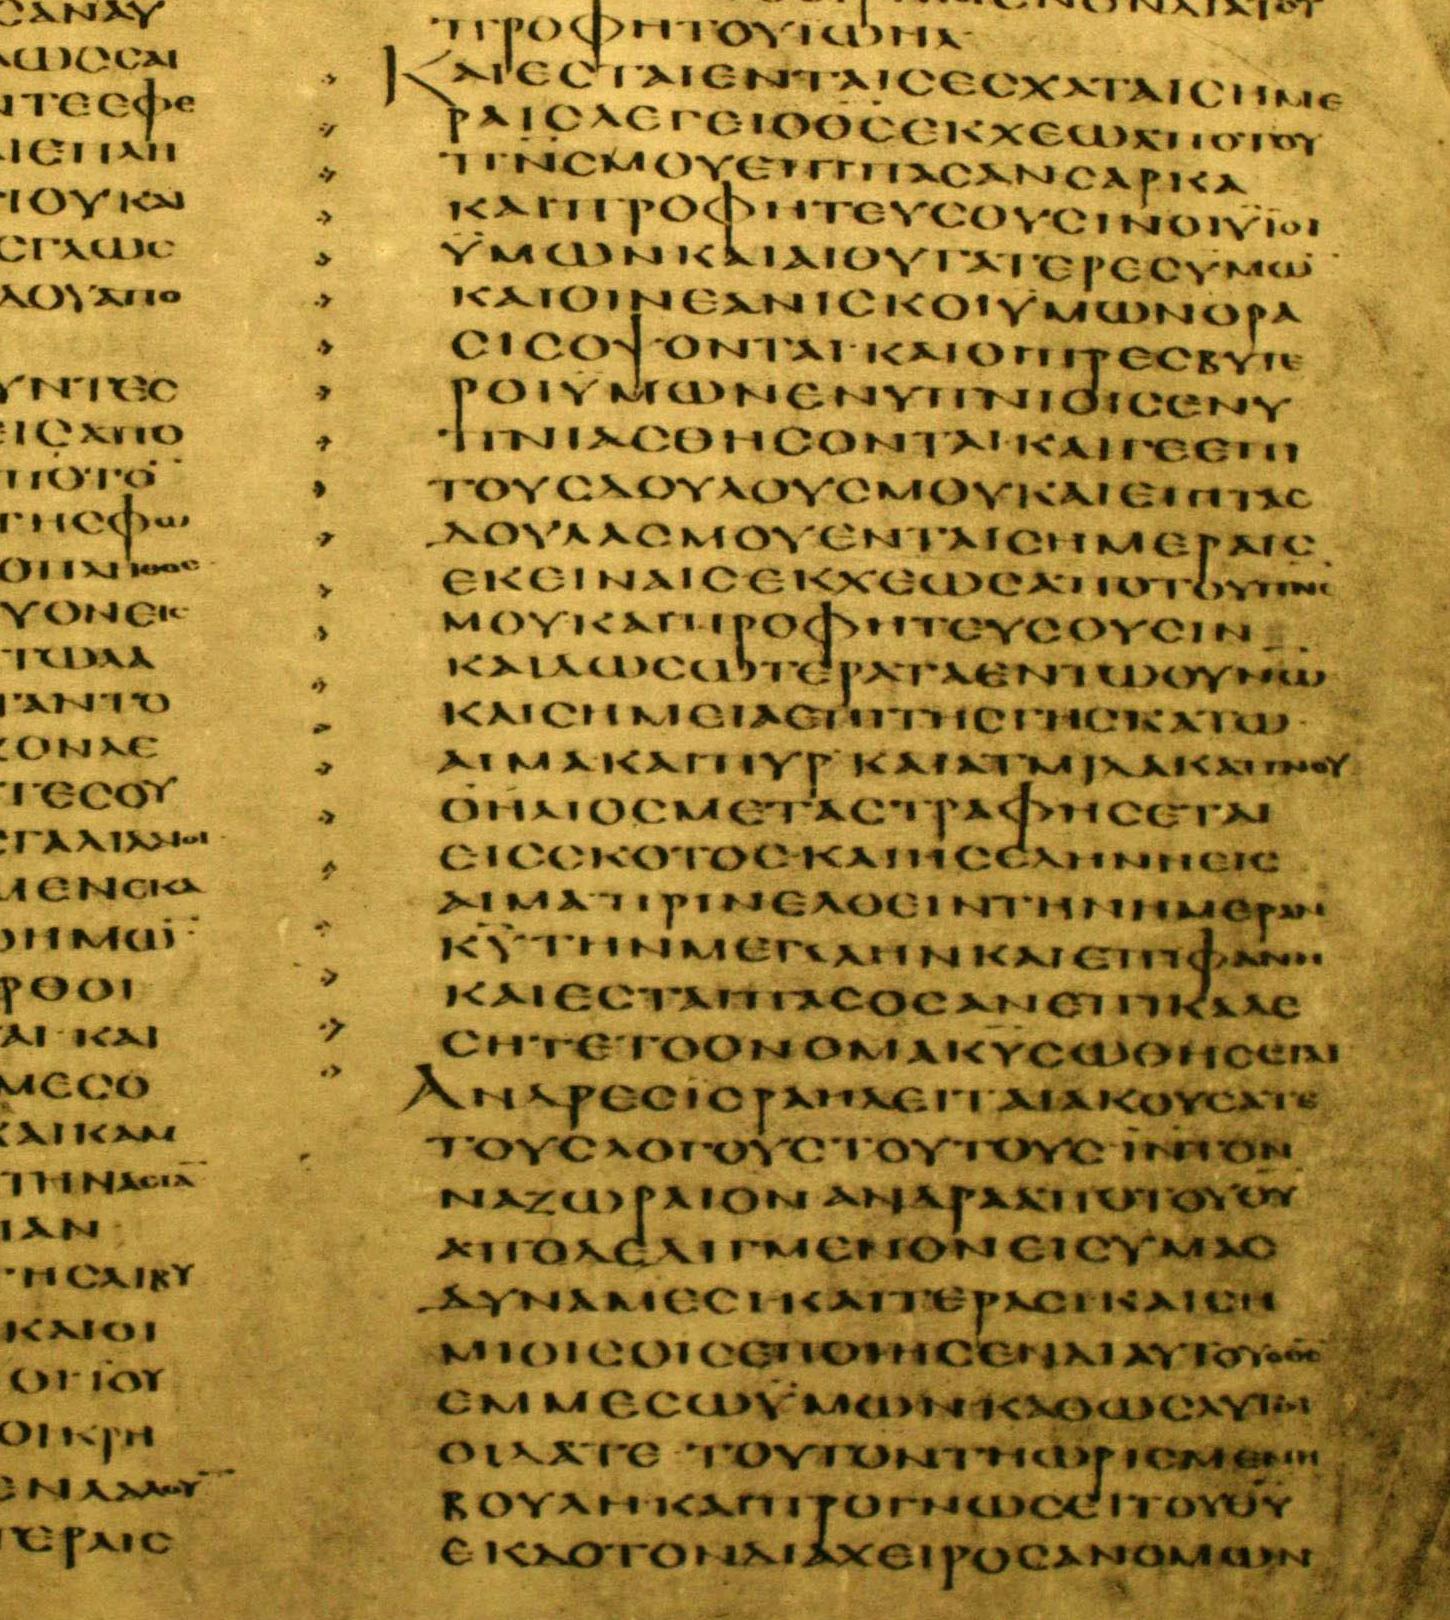 ϹΑΝΑΥ
ΛΩϹϹΑΙ
ΝΤΕΕΦΘ
ΤΟΥΚΑΙ
ϹΓΛΩϹ
ΛΟΥΑΠΟ
ΥΝΤΕϹ
ΕΙϹΑΠΟ
ΤΗϹΦΩ
ΥΟΝΕΙϹ
ΖΟΝΔΕ
ΤΕϹΟΥ
ΕΓΑΛΙΛΑΙΟΙ
ΜΕΝΕΚΑ
ΗΜΩ̅
ΡΘΟΙ
ΑΙ·ΚΑΙ
ΜΕϹΟ
ΚΑΙΚΑΠ
ΤΗΝΑϹΙΑ̅
ΙΑΝ
ΤΗϹΛΙΒΥ
ΚΑΙΟΙ
ΟΙΚΡΗ
ΕΝΛΑΛΟΥ
ΤΕΡΑΙϹ
ΠΡΟΦΗΤΟΥΙΩΗΛ·
ΚΑΙΕϹΤΑΙΕΝΤΑΙϹΕϹΧΑΤΑΙϹΗΜΕ
ΡΑΙϹΛΕΓΕΙΟΘ̅Ϲ̅ΕΚΧΕΩΑΠΟΤΟΥ
Π̅Ν̅Ϲ̅ΜΟΥΕΠΙΠΑϹΑΝϹΑΡΚΑ
ΚΑΙΠΡΟΦΗΤΕΥϹΟΥϹΙΝΟΙΫΙΟΙ
ΫΜΩΝΚΑΙΑΙΘΥΓΑΤΕΡΕϹΥΜΩ̅
ΚΑΙΟΙΝΕΑΝΙϹΚΟΙΥΜΩΝΟΡΑ
ϹΙϹΟΨΟΝΤΑΙ·ΚΑΙΟΙΠΡΕϹΒΥΤΕ
ΡΟΙΥΜΩΝΕΝΥΠΝΙΟΙϹΕΝΥ
ΠΝΙΑϹΘΗϹΟΝΤΑΙ·ΚΑΙΓΕΕΠΙ
ΤΟΥϹΔΟΥΛΟΥϹΜΟΥΚΑΙΕΠΙΤΑϹ
ΔΟΥΛΑϹΜΟΥΕΝΤΑΙϹΗΜΕΡΑΙϹ
ΕΚΕΙΝΑΙϹΕΚΧΕΩΑΠΟΤΟΥΠ̅Ν̅Ϲ̅
ΜΟΥΚΑΙΠΡΟΦΗΤΕΥϹΟΥϹΙΝ
ΚΑΙΔΩϹΩΤΕΡΑΤΑΕΝΤΩΟΥΝΩ̅
ΚΑΙϹΗΜΕΙΑΕΠΙΤΗϹΓΗϹΚΑΤΩ·
ΑΙΜΑΚΑΙΠΥΡ·ΚΑΙΑΤΜΙΔΑΚΑΠΝΟΥ
ΟΗΛΙΟϹΜΕΤΑϹΤΡΑΦΗϹΕΤΑΙ
ΕΙϹϹΚΟΤΟϹ·ΚΑΙΗϹΕΛΗΝΗΕΙϹ
ΑΙΜΑ·ΠΡΙΝΕΛΘΕΙΝΤΗΝΗΜΕΡΑΝ
Κ̅Υ̅ΤΗΝΜΕΓΑΛΗΝΚΑΙΕΠΙΦΑΝΗ
ΚΑΙΕϹΤΑΙΠΑϹΟϹΑΝΕΠΙΚΑΛΕ
ϹΗΤΕΤΟΟΝΟΜΑΚ̅Υ̅ϹΩΘΗϹΕΤΑΙ
ΑΝΔΡΕϹΙϹΡΑΗΛΕΙΤΑΙΑΚΟΥϹΑΤΕ
ΤΟΥϹΛΟΓΟΥϹΤΟΥΤΟΥϹ·Ι̅Ν̅ΤΟΝ
ΝΑΖΩΡΑΙΟΝΑΝΔΡΑΑΠΟΤΟΥΘ̅Υ̅
ΑΠΟΔΕΔΙΓΜΕΝΟΝΕΙϹΥΜΑϹ
ΔΥΝΑΜΕϹΙΚΑΙΤΕΡΑϹΙΚΑΙϹΗ
ΜΙΟΙϹΟΙϹΕΠΟΙΗϹΕΝΔΙΑΥΤΟΥΟΘ̅Ϲ̅
ΕΜΜΕϹΩΫΜΩΝΚΑΘΩϹΑΥΤΟΙ
ΟΙΔΑΤΕ·ΤΟΥΤΟΝΤΗΩΡΙϹΜΕΝΗ
ΒΟΥΛΗΚΑΙΠΡΟΓΝΩϹΕΙΤΟΥΘ̅Υ̅
ΕΚΔΟΤΟΝΔΙΑΧΕΙΡΟϹΑΝΟΜΩΝ